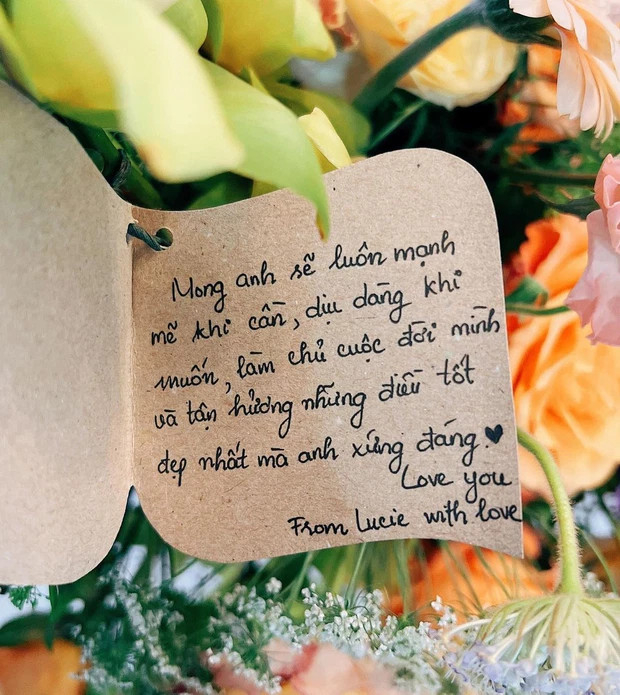 Mong anh sẽ luôn mạnh
mẽ khi cần, dịu dàng khi
muốn, làm chủ cuộc đời mình
và tận hưởng những điều tốt
đẹp nhất mà anh xứng đáng.♥
Love you
From Lucie with love